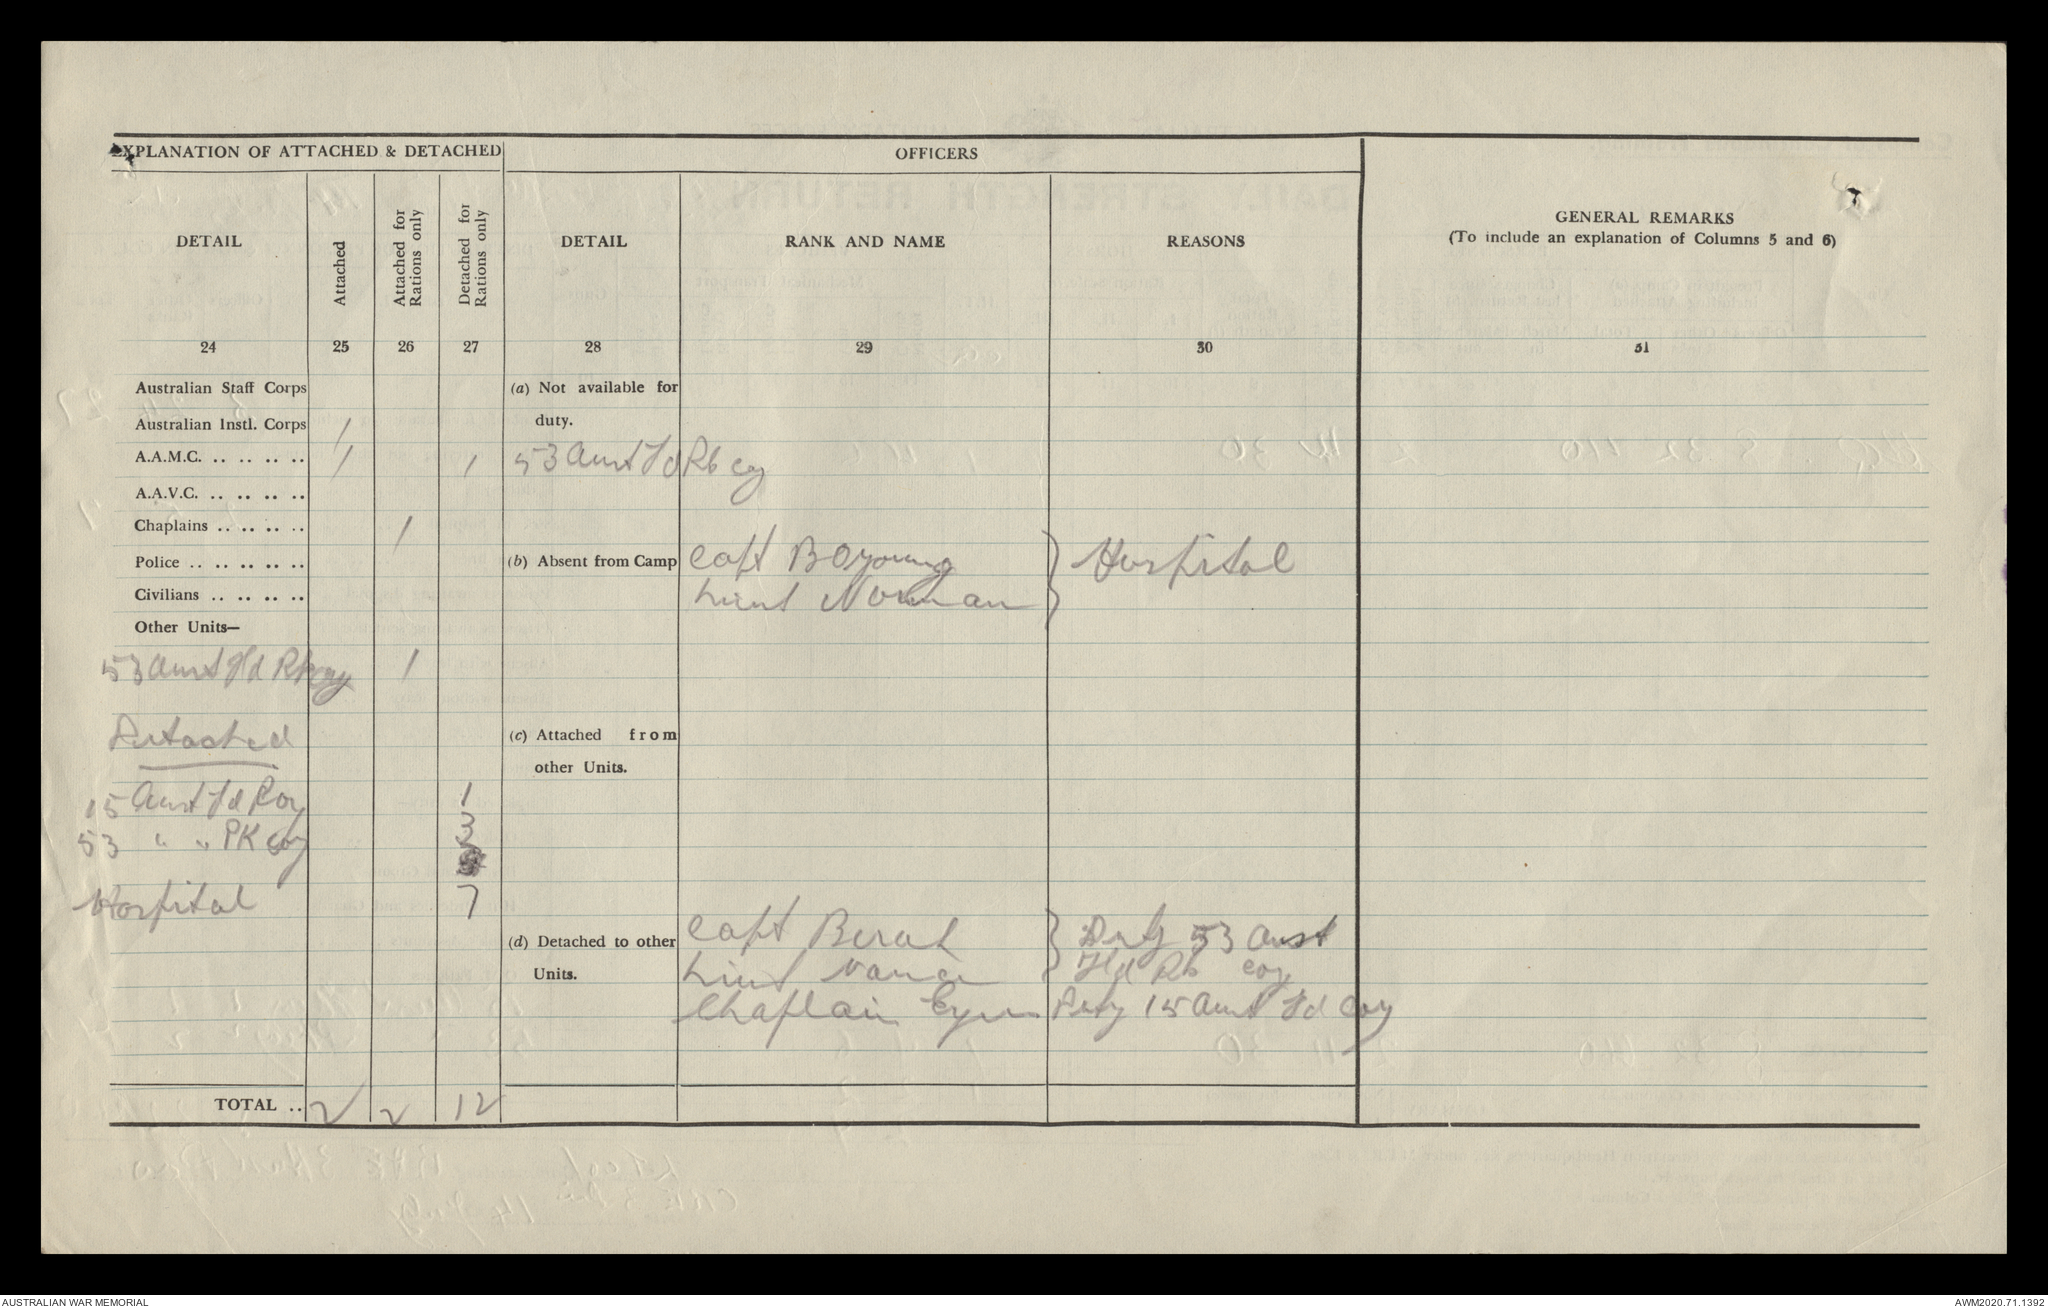 EXPLANATION OF ATTACHED & DETACHED
OFFICERS
GENERAL REMARKS
(To include an explanation of Columns 5 and 6)
DETAIL
Attached
Attached for Rations only
Detached for Rations only
DETAIL
RANK AND NAME
REASONS
24 25 26 27 28 29 30 31
Australian Staff Corps
(a) Not available for
duty.
Australian Instl. Corps 1
A.A.M.C. .. .. .. .. 1 1 53 Aust Fd Pk coy
A.A.V.C. .. .. .. ..
Chaplains .. .. .. .. 1
Police .. .. .. .. ..
(b) Absent from Camp Capt Boyoung } Hospital
Civilians .. .. .. .. Lieut Norman
Other Units—
53 Aust Fd Pk coy 1
Detached
(c) Attached from
other Units.
15 Aust Fd Coy 1
53 " " PK coy 3
Hospital 7
(d) Detached to other Capt } Duty 53 Aust
Units. Lieut Fld Pk coy
Chaplain Duty 15 Aust Fd Coy
TOTAL .. 2 2 12
AUSTRALIAN WAR MEMORIAL
AWM2020.71.1392